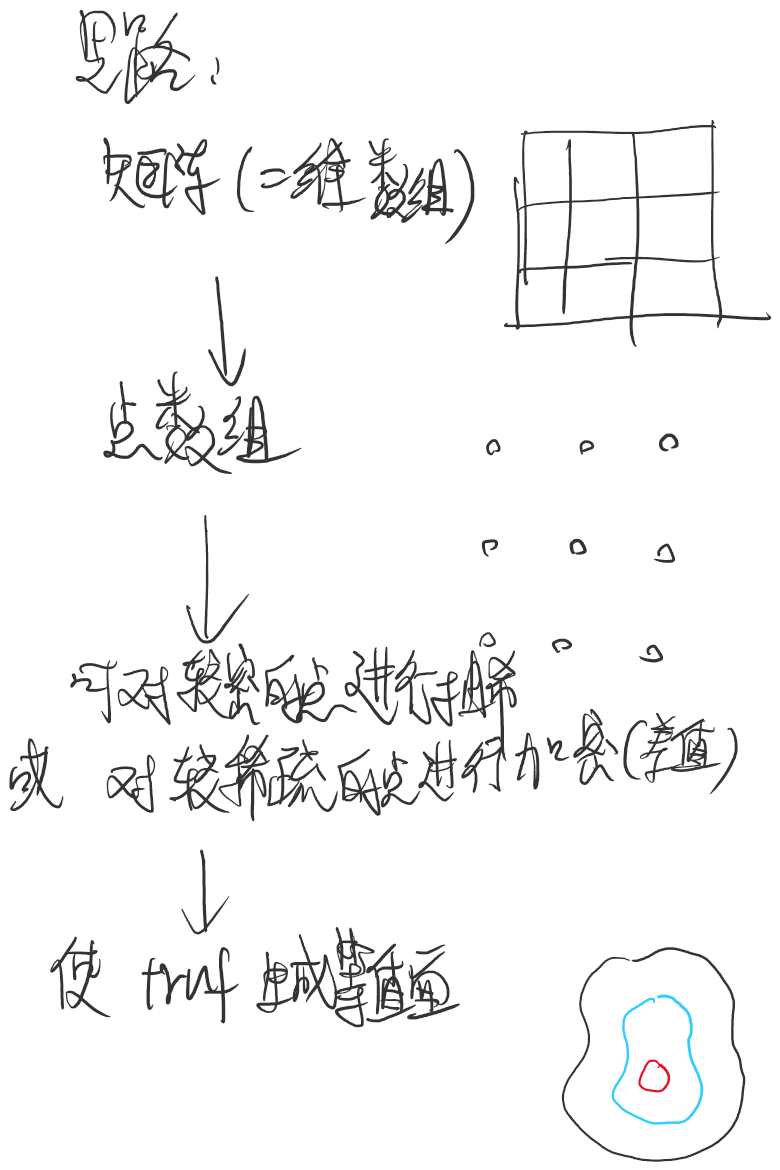 思路:
矩阵(二维数组)
点数组
可对较密的点进行抽稀
或 对较稀疏的点进行加密(差值)
使 truf 生成等值面